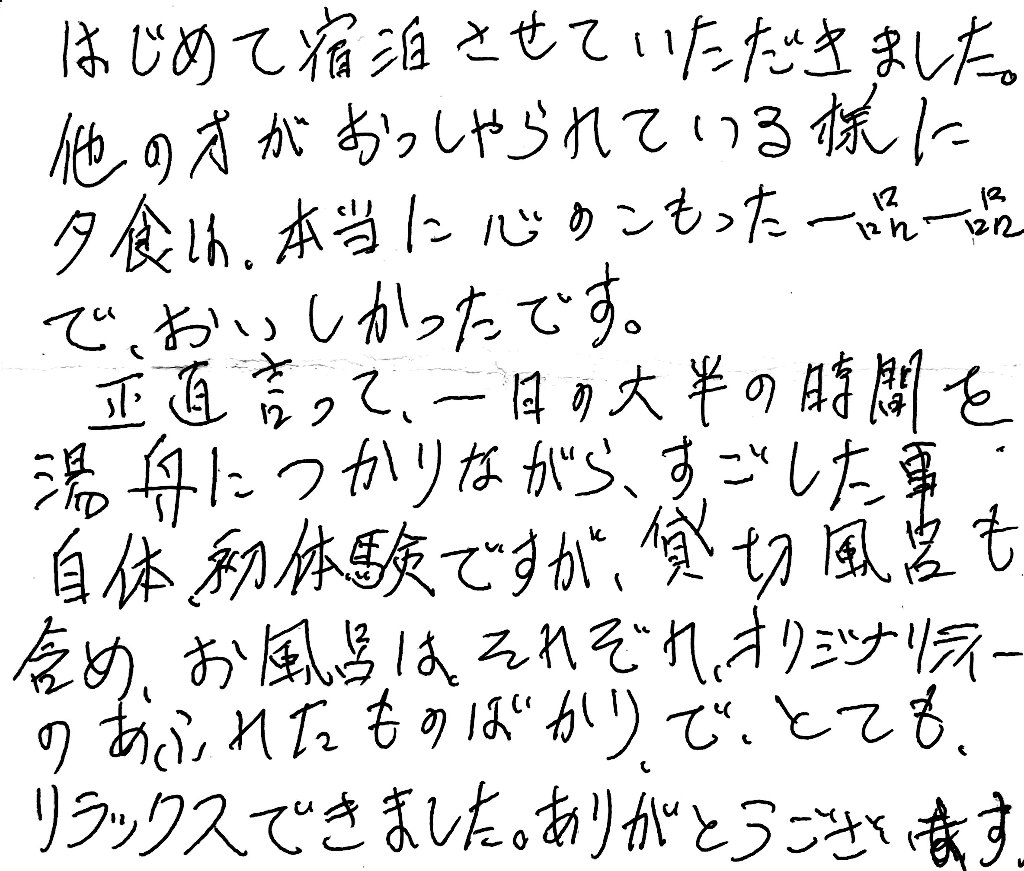 はじめて宿泊させていただきました。
他の方がおっしゃられている様に
夕食は、本当に心のこもった一品一品
で、おいしかったです。
正直言って、一日の大半の時間を
湯舟につかりながら、すごした事
自体、初体験ですが、貸切風呂も
含め、お風呂は、それぞれ、オリジナリティー
のあふれたものばかり、で、とても、
リラックスできました。ありがとうございます。